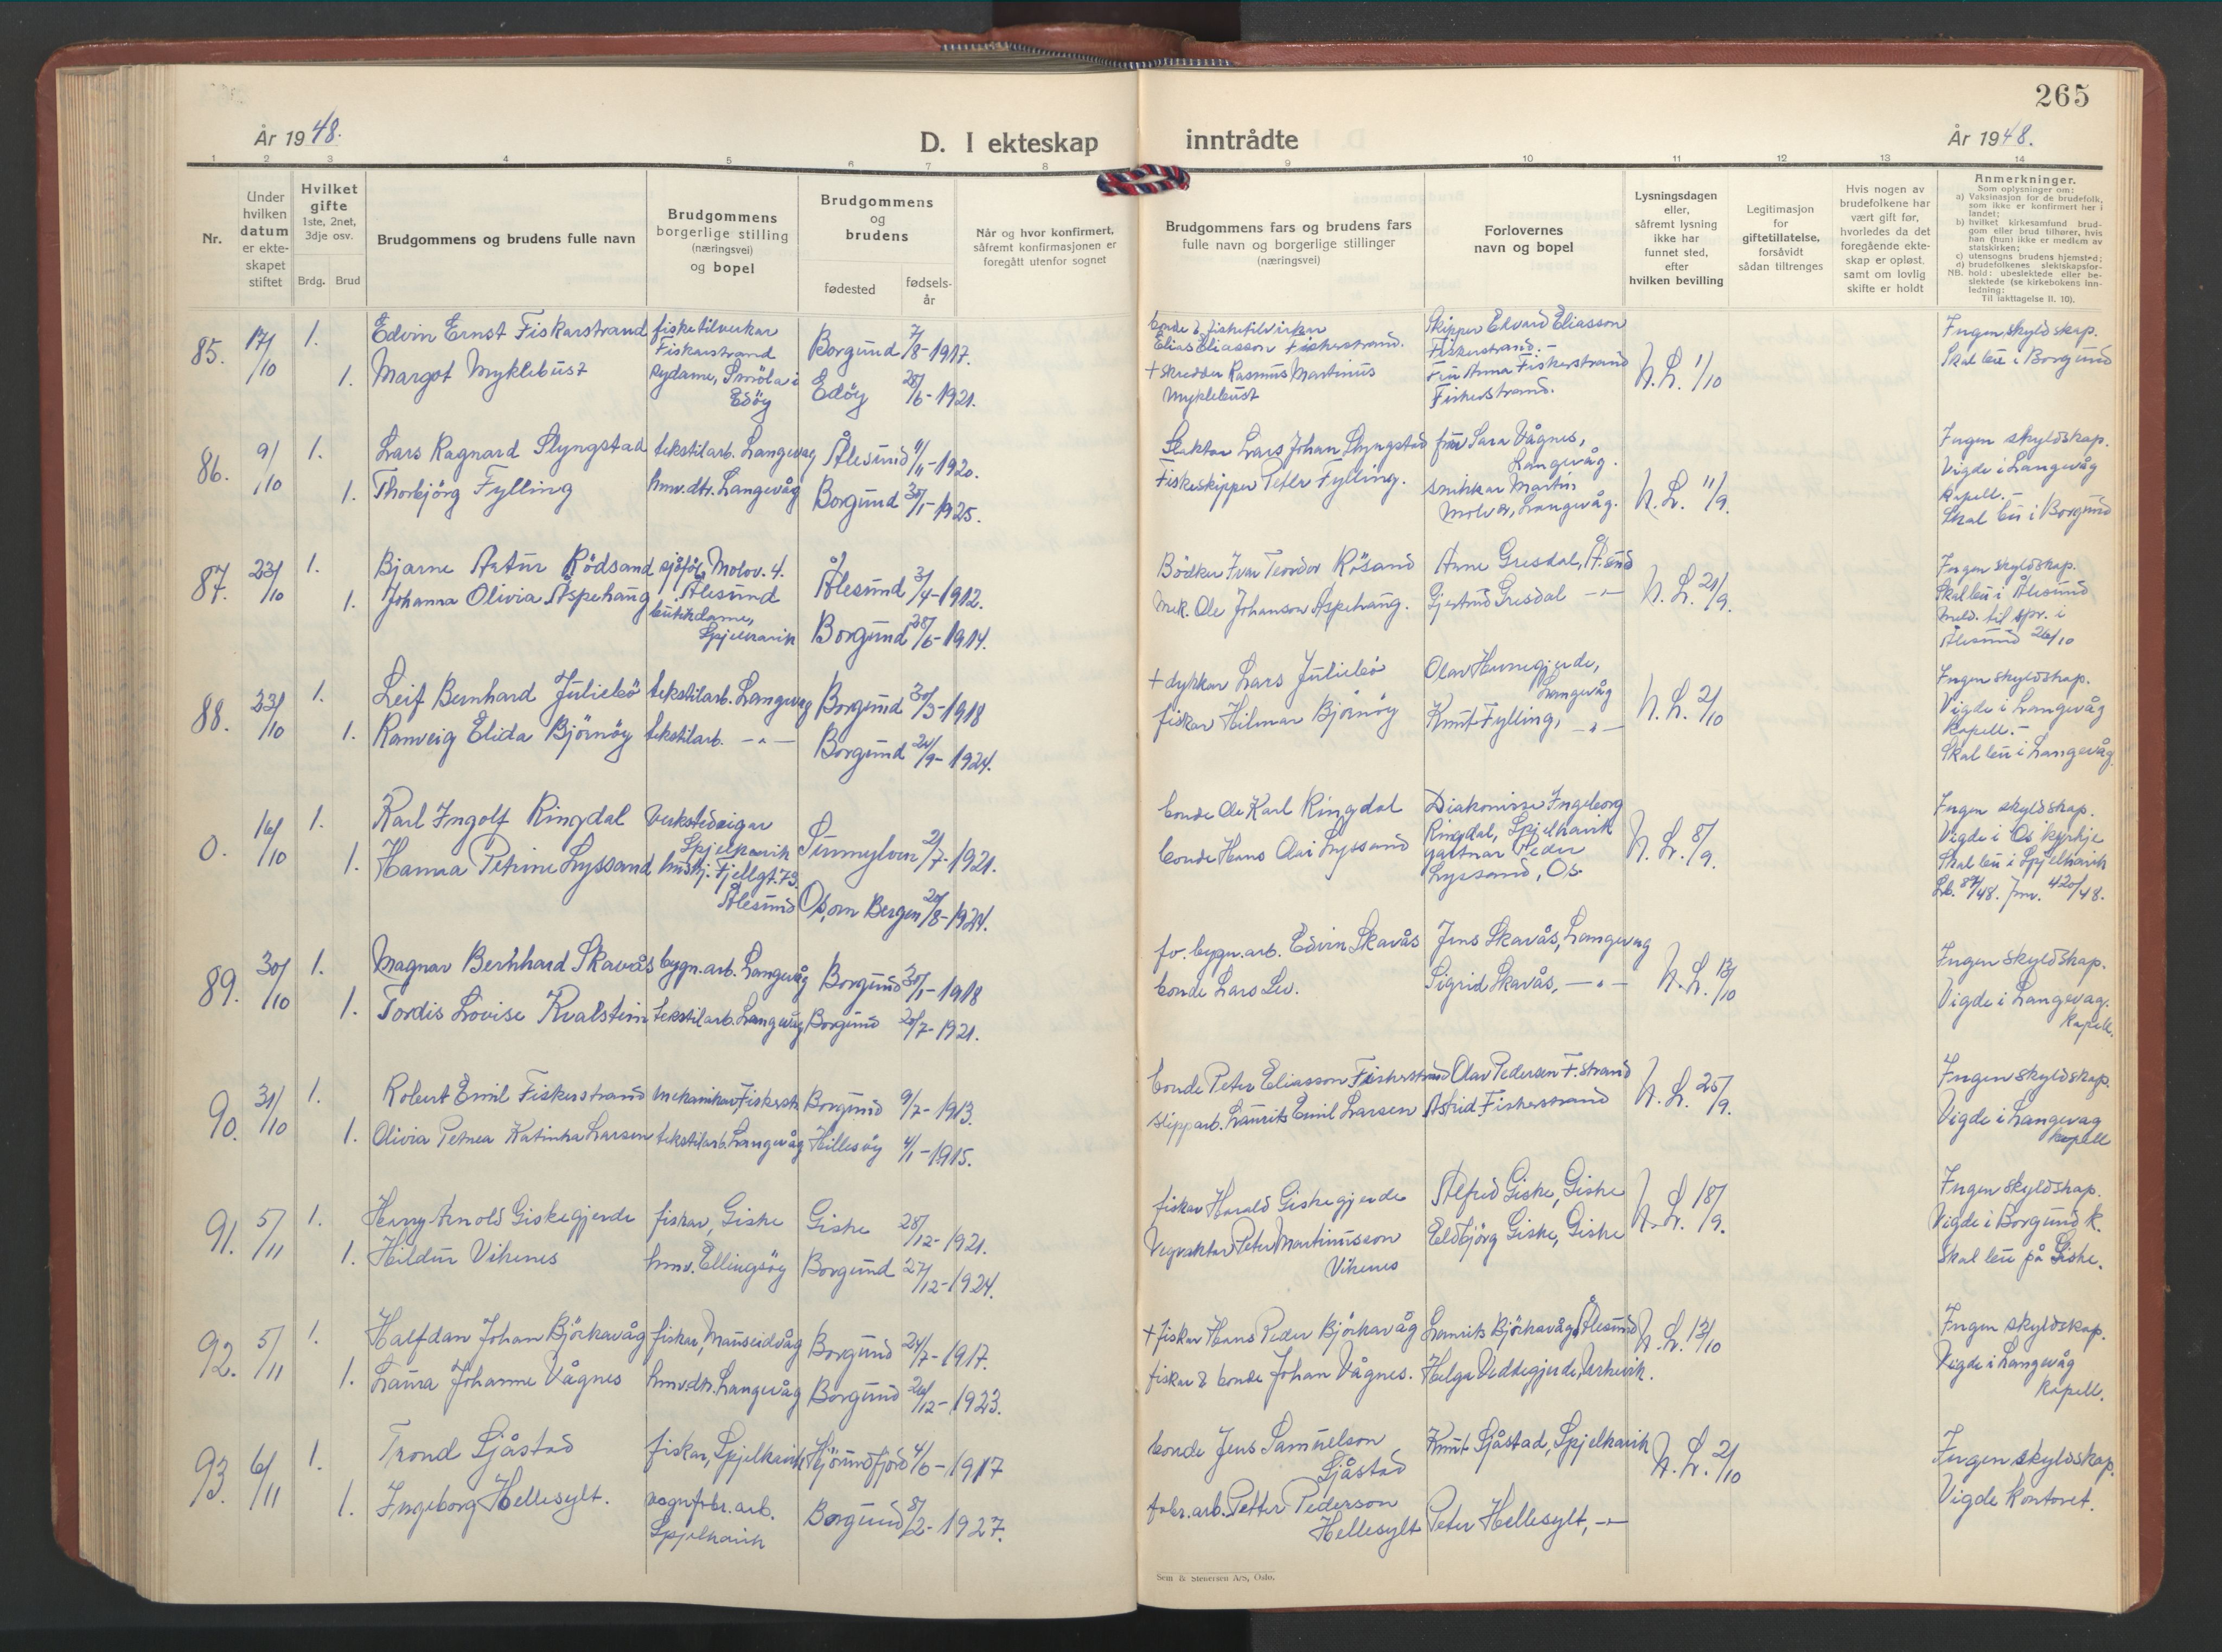 265
År 1948.
D. I ekteskap inntrådte
År 1948.
1 2 3 4 5 6 7 8 9 10 11 12 13 14
Nr.
Under hvilken datum er ekteskapet stiftet
Hvilket gifte
1ste, 2net, 3dje osv.
Brdg. Brud
Brudgommens og brudens fulle navn
Brudgommens borgerlige stilling (næringsvei) og bopel
Brudgommens og brudens
fødested
fødselsår
Når og hvor konfirmert, såfremt konfirmasjonen er foregått utenfor sognet
Brudgommens fars og brudens fars fulle navn og borgerlige stillinger (næringsvei)
Forlovernes navn og bopel
Lysningsdagen eller, såfremt lysning ikke har funnet sted, efter hvilken bevilling
Legitimasjon for giftetillatelse, forsåvidt sådan tiltrenges
Hvis nogen av brudefolkene har vært gift før, hvorledes da det foregående ekteskap er opløst, samt om lovlig skifte er holdt
Anmerkninger.
Som oplysninger om:
a) Vaksinasjon for de brudefolk, som ikke er konfirmert her i landet;
b) hvilket kirkesamfund brudgom eller brud tilhører, hvis han (hun) ikke er medlem av statskirken;
c) utensogns brudens hjemsted;
d) brudefolkenes slektskapsforhold: ubeslektede eller beslektede (se kirkebokens innledning:
NB. Til iakttagelse II. 10).
85. 17/10 1. Edvin Ernst Fiskarstrand fisketilverkar Fiskarstrand Borgund 7/8-1917.
1. Margot Myklebust sydame, Smöla i Edöy Edöy 28/6-1921.
bonde & fisketilvirker
Elias Eliasson Fiskerstrand.
+ skredder Rasmus Martinius
Myklebust
Skipper Edvard Eliasson
Fiskerstrand.-
Fru Anna Fiskerstrand
Fiskerstrand.
N. L. 1/10
Ingen skyldskap.
Skal bu i Borgund
86. 9/10 1. Lars Ragnard Slyngstad tekstilarb. Langevåg Ålesund 11/11-1920.
1. Thorbjörg Fylling hmv.dtr. Langevåg Borgund 30/1-1925.
Slaktar Lars Johan Slyngstad
Fiskeskipper Petter Fylling.
fru Sara Vågnes,
Langevåg.
snikkar Martin
Molvær, Langevåg.
N. L. 11/9.
Ingen skyldskap.
Vigde i Langevåg
kapell.-
Skal bu i Borgund
87. 23/10 1. Bjarne Artur Rödsand sjöfør, Molov. 4. Ålesund Ålesund 3/4-1912.
1. Johanna Olivia Aspehaug butikdame, Spjelkavik Borgund 28/6-1914.
Bödker Ivar Teodor Rösand
Mek. Ole Johanson Aspehaug.
Arne Gresdal, Å.sund
Gjertrud Gresdal -"-
N. L. 21/9.
Ingen skyldskap.
Skal bu i Ålesund
Meld. til spr. i
Ålesund 26/10
88. 23/10 1. Leif Bernhard Juliebö tekstilarb. Langevåg Borgund 30/3-1918
1. Ranveig Elida Björnöy tekstilarb. -"- Borgund 24/9-1924.
+ dykkar Lars Juliebö
fiskar Hilmar Björnöy
Olav Hunnegjerde,
Langevåg
Knut Fylling, -"-
N. L. 2/10
Ingen skyldskap.
Vigde i Langevåg
kapell.-
Skal bu i Langevåg
0. 16/10 1. Karl Ingolf Ringdal Verkstedeigar Spjelkavik Sunnylven 2/7-1921.
1. Hanna Petrine Lyssand hushj. Fjellgt. 73. Ålesund Os, om Bergen 20/8-1924.
bonde Ole Karl Ringdal
bonde Hans Olai Lyssand
Diakonisse Ingeborg
Ringdal, Spjelkavik
gartnar Peder
Lyssand, Os
N. L. 8/9.
Ingen skyldskap.
Vigde i Os kyrkje
Skal bu i Spjelkavik
Lb. 89/48. Jnr. 420/48.
89. 30/10 1. Magnar Bernhard Skavås bygn.arb. Langevåg Borgund 30/1-1918
1. Tordis Lovise Kvalsteim tekstilarb. Langevåg Borgund 20/7-1921.
fo. bygn.arb. Edvin Skavås
bonde Lars
Jens Skavås, Langevåg
Sigrid Skavås, -"-
N. L. 13/10
Ingen skyldskap.
Vigde i Langevåg.
kapell.
90. 31/10 1. Robert Emil Fiskerstrand mekanikar, Fiskerstr. Borgund 9/7-1913.
1. Olivia Petrea Katinka Larsen tekstilarb. Langevåg Hillesöy 4/1-1915.
bonde Peter Eliasson Fiskerstrand
slipparb. Laurits Emil Larsen
Olav Pedersen F.strand
Astrid Fiskerstrand
N. L. 25/9.
Ingen skyldskap.
Vigde i Langevåg
kapell
91. 5/11 1. Harry Arnold Giskegjerde fiskar, Giske Giske 28/12-1921.
1. Hildur Vikenes hmv. Ellingsöy Borgund 27/12-1924.
fiskar Harald Giskegjerde
Vegvaktar Peter Martinusson
Vikenes
Alfred Giske, Giske
Eldbjörg Giske, Giske
N. L. 18/9.
Ingen skyldskap.
Vigde i Borgund k.
Skal bu på Giske.
92. 5/11 1. Halfdan Johan Björkavåg fiskar, Mauseidvåg Borgund 24/7-1917.
1. Laura Johanne Vågnes hmv.dtr. Langevåg Borgund 20/12-1923.
+ fiskar Hans Peder Björkavåg
fiskar & bonde Johan Vågnes.
Laurits Björkavåg, Ålesund
Helga Veddegjerde,
N. L. 13/10
Ingen skyldskap.
Vigde i Langevåg
kapell.
93. 6/11 1. Trond Sjåstad fiskar, Spjelkavik Hjörundfjord 4/6-1917
1. Ingeborg Hellesylt. vognfabr. arb. Spjelkavik Borgund 8/2-1927.
bonde Jens Samuelson
Sjåstad
fabr.arb. Petter Pederson
Hellesylt
Knut Sjåstad, Spjelkavik
Peter Hellesylt, -"-
N. L. 2/10
Ingen skyldskap.
Vigde kontoret.
Sem & Stenersen A/S, Oslo.